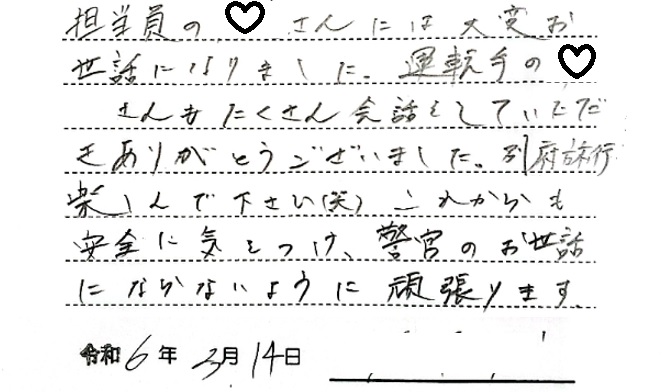 担当員の♡さんには大変お
世話になりました。運転手の♡
さんもたくさん会話をしていただ
きありがとうございました。別府旅行
楽しんで下さい(笑) これからも
安全に気をつけ、警官のお世話
にならないように頑張ります
令和6年3月14日